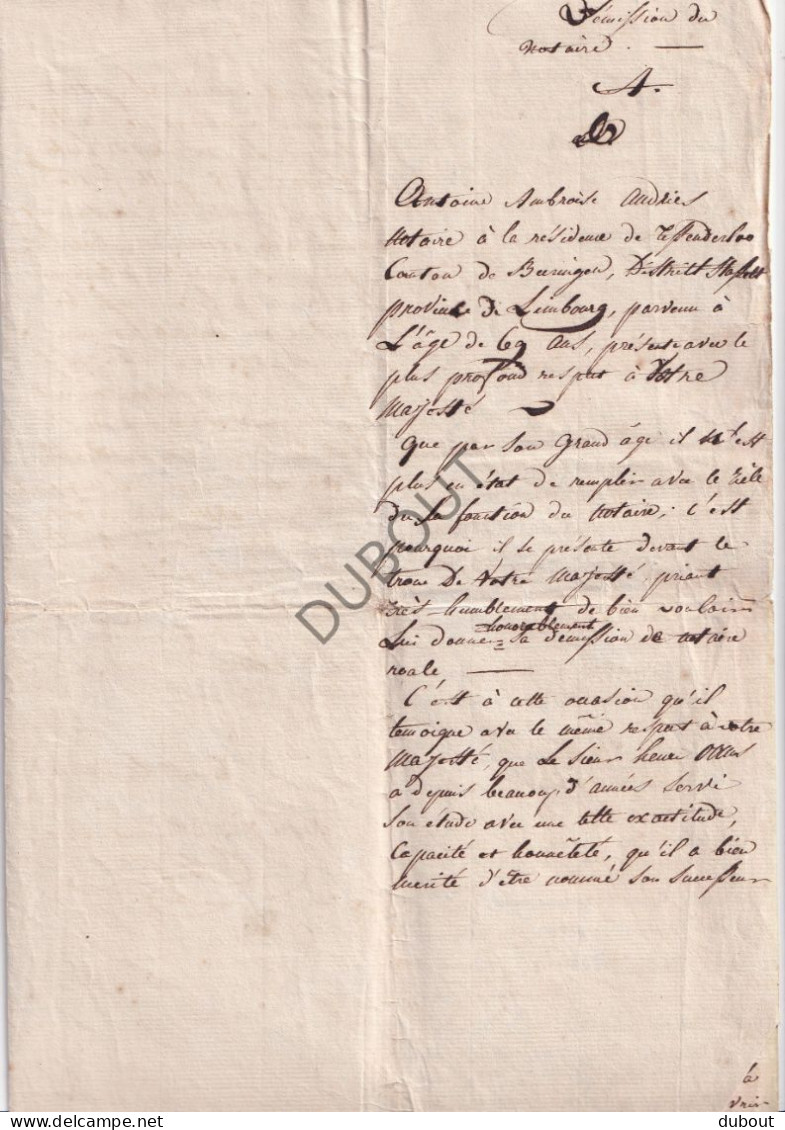 Démission du
notaire. —
A.
Antoine Ambroise Andries
notaire à la résidence de Tessenderloo
Canton de Beeringen, District Hasselt
province de Limbourg, parvenu à
L'âge de 69 ans, présente avec le
plus profond respect à Votre
Majesté
que par son grand âge il n'est
plus en état de remplir avec le zèle
du la fonction du notaire; c'est
pourquoi il se présente devant le
trone De Votre Majesté priant
très humblement de bien vouloir
honorablement
Lui donner = sa démission de notaire
roale —
C'est à cette occasion qu'il
temoigne avec le même respect à votre
Majesté, que Le Sieur henri
a depuis beaucoup d'années servi
son étude avec une telle exactitude,
Capacité et honnêteté, qu'il a bien
merité d'être nommé son successeur
à
DUBOUT
© dubout
www.delcampe.net